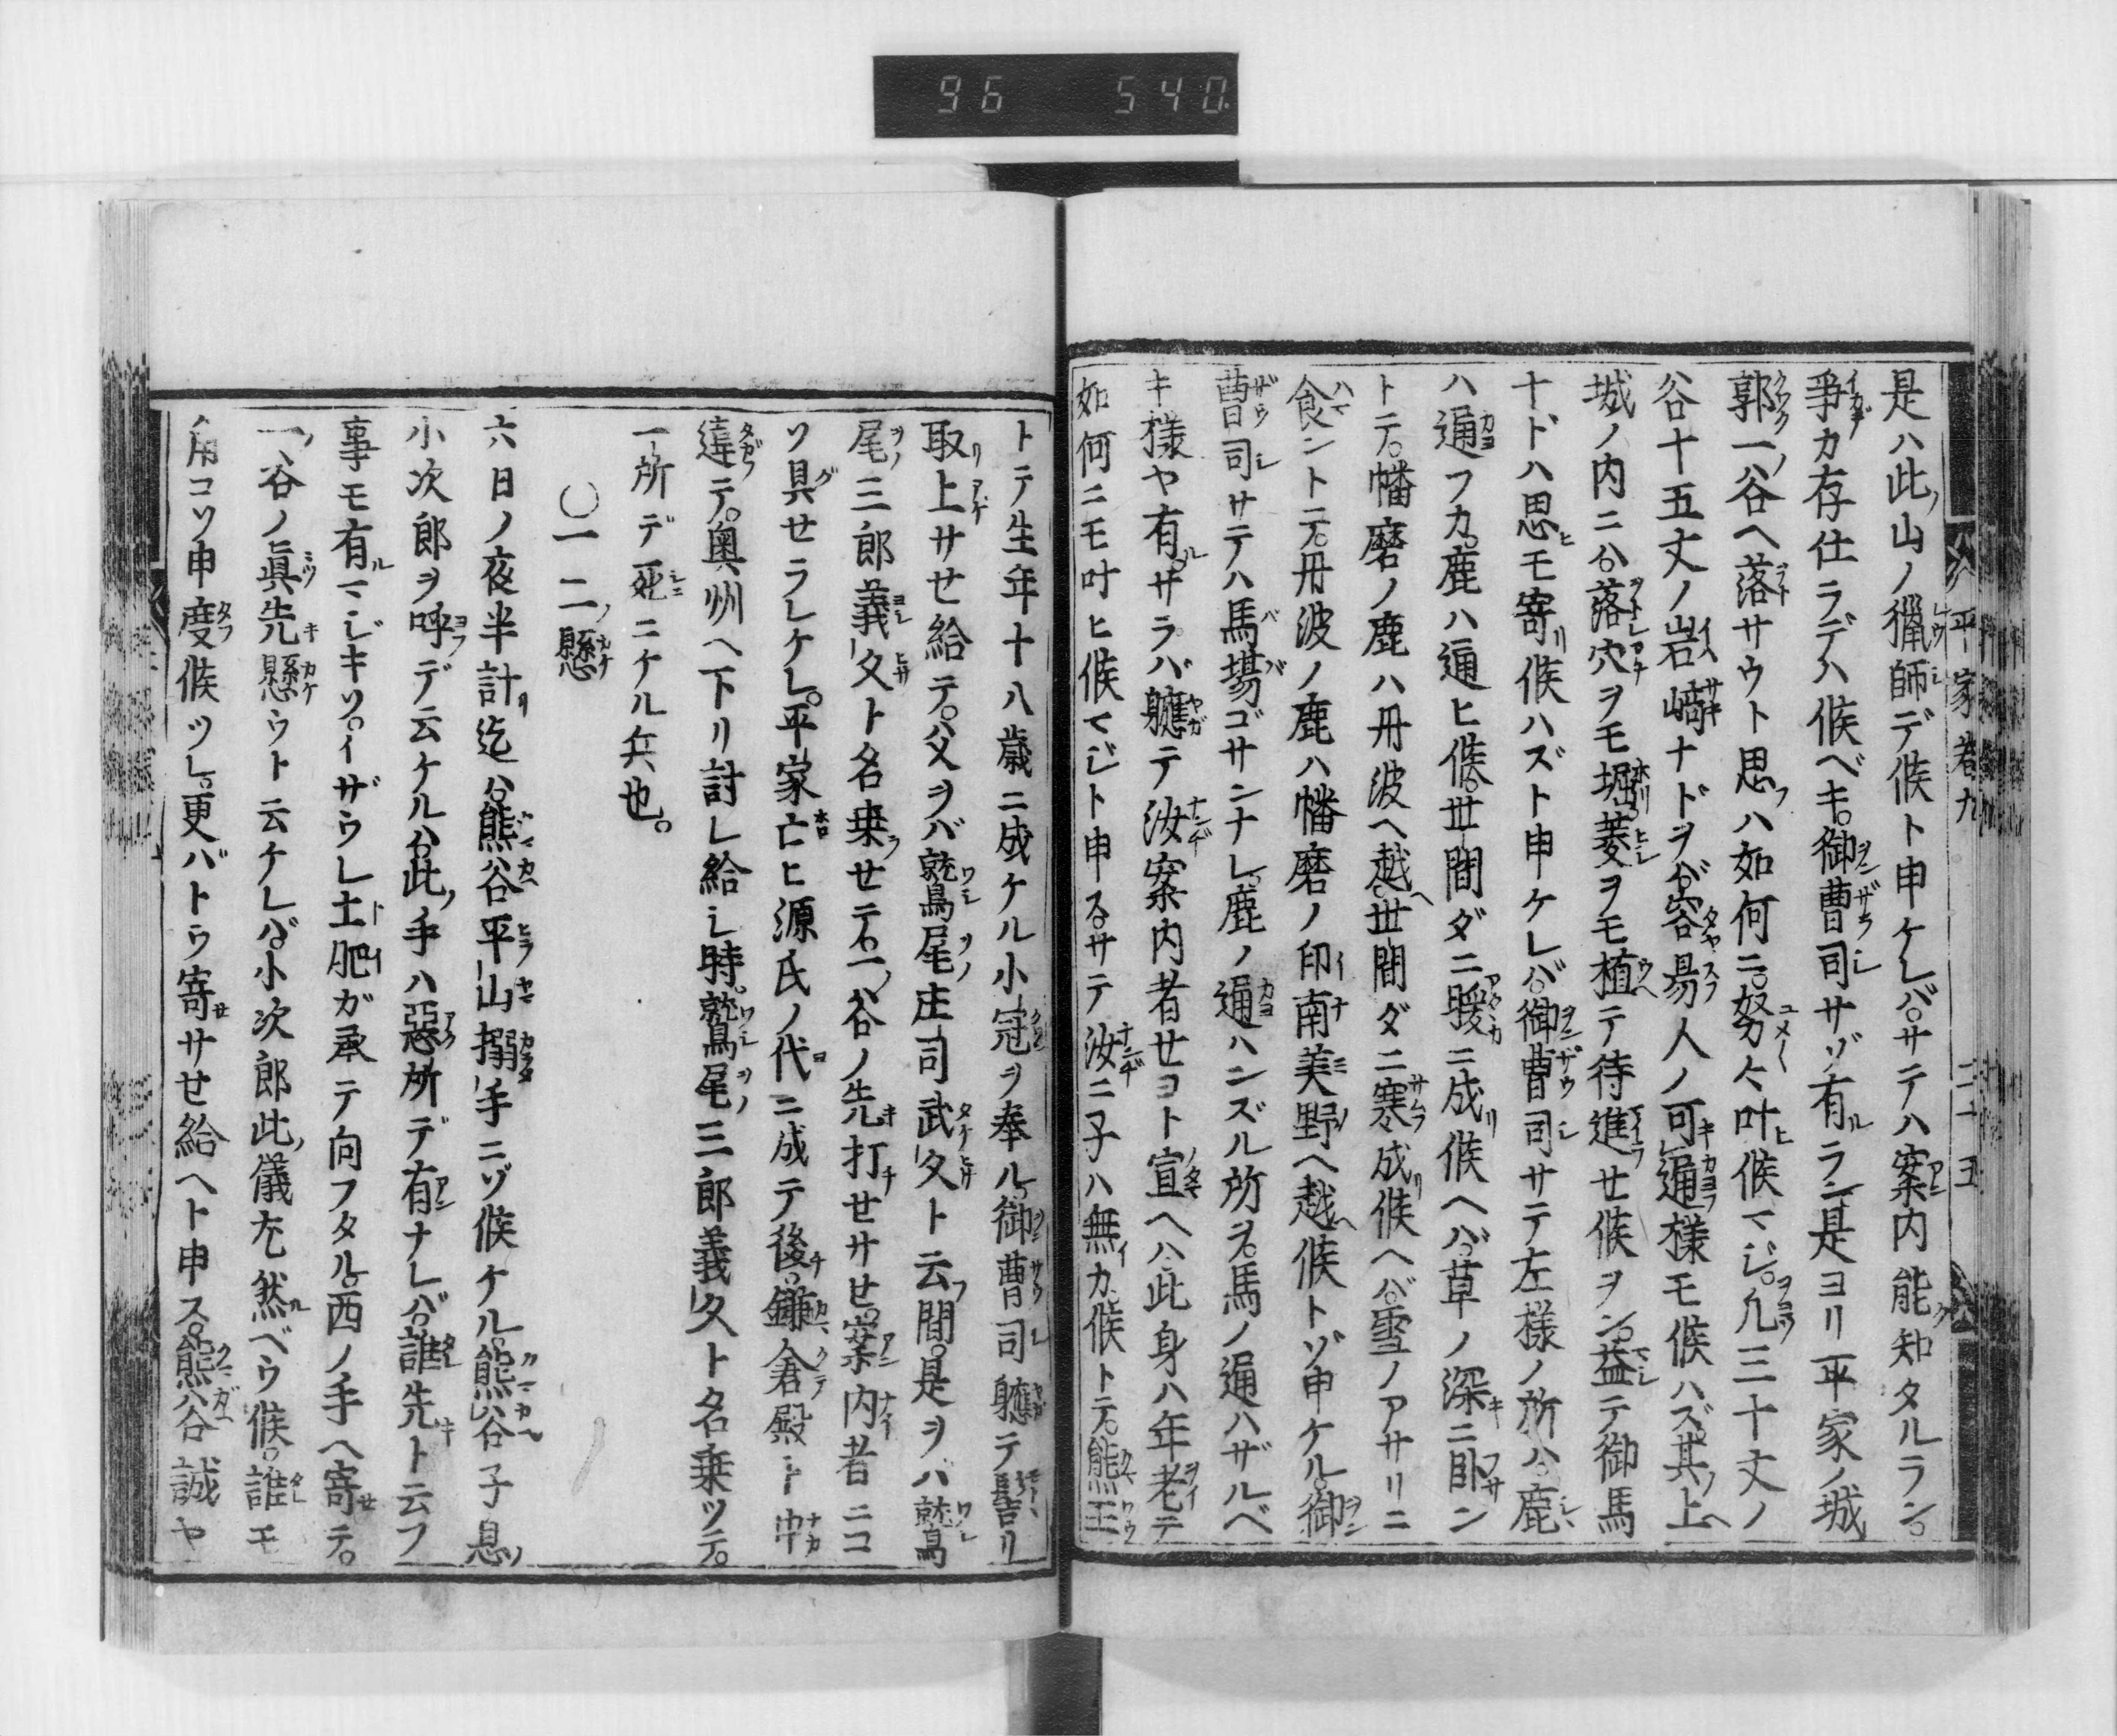 96 540
平家巻九 二十五
是ハ此ノ山ノ猟師デ候ト申ケレバ。サテハ案内能知タルラン。
爭カ存仕ラデハ候ベキ。御曹司サゾ有ラン是ヨリ平家ノ城
郭一ノ谷ヘ落サウト思フハ如何ニ。努々叶ヒ候マジ。凡三十丈ノ
谷十五丈ノ岩﨑ナドヲバ容易人ノ可キ通様モ候ハズ其ノ上ヘ
城ノ内ニハ落穴ヲモ堀菱ヲモ植テ待進セ候ラン。益テ御馬
ナドハ思ヒモ寄リ候ハズト申ケレバ。御曹司サテ左様ノ所ハ鹿
ハ通フカ。鹿ハ通ヒ候。世間ダニ暖ニ成リ候ヘバ草ノ深キニ臥サン
トテ。幡磨ノ鹿ハ丹波ヘ越ヘ。世間ダニ寒成リ候ヘバ。雪ノアサリニ
食ントテ。丹波ノ鹿ハ幡磨ノ印南美野ヘ越ヘ候トゾ申ケル。御
曹司サテハ馬場ゴサンナレ。鹿ノ通ハンズル所ヲ。馬ノ通ハザルベ
キ様ヤ有ル。サラバ軈テ汝案内者セヨト宣ヘハ。此身ハ年老テ
如何ニモ叶ヒ候マジト申ス。サテ汝ニ子ハ無イカ。候トテ。熊王
トテ生年十八歳ニ成ケル小冠ヲ奉ル。御曹司軈テ髻リ
取リ上サセ給テ。父ヲバ鷲尾庄司武久ト云フ間。是ヲバ鷲
尾三郎義久ト名乗セテ。一ノ谷ノ先キ打チセサセ。案内者ニコ
ソ具セラレケレ。平家亡ヒ源氏ノ代ニ成テ後チ。鎌倉殿ト中
違テ。奥州ヘ下リ討レ給シ時。鷲尾三郎義久ト名乗ツテ。
一所デ死ニケル兵也。
〇一二ノ懸
六日ノ夜半計リ迄ハ。熊谷平山搦手ニゾ候ケル。熊谷子息ノ
小次郎ヲ呼デ云ケルハ。此ノ手ハ惡所デ有ナレバ。誰先キト云フ
事モ有ルマジキゾ。イザウレ土肥ガ承テ向フタル。西ノ手ヘ寄セテ。
一ノ谷ノ眞先キ懸ウト云ケレバ。小次郎此ノ儀尤然ルベウ候。誰モ
角コソ申度候ツレ。更バトウ寄サセ給ヘト申ス。熊谷誠ヤ